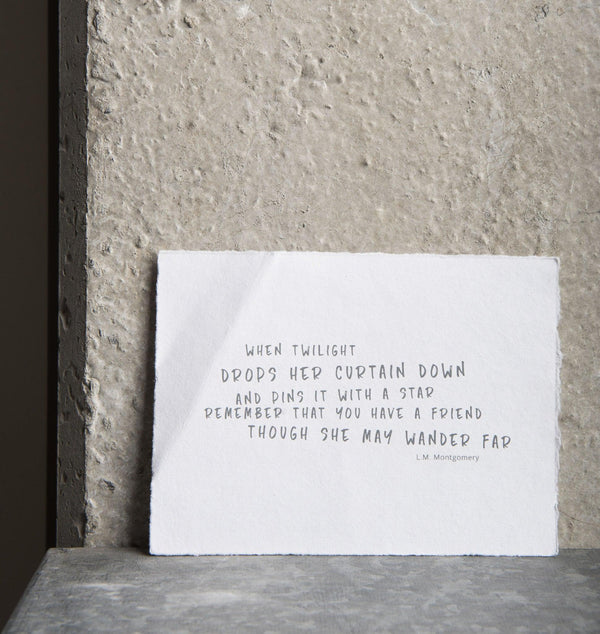 WHEN TWILIGHT
DROPS HER CURTAIN DOWN
AND PINS IT WITH A STAR
REMEMBER THAT YOU HAVE A FRIEND
THOUGH SHE MAY WANDER FAR
L.M. Montgomery